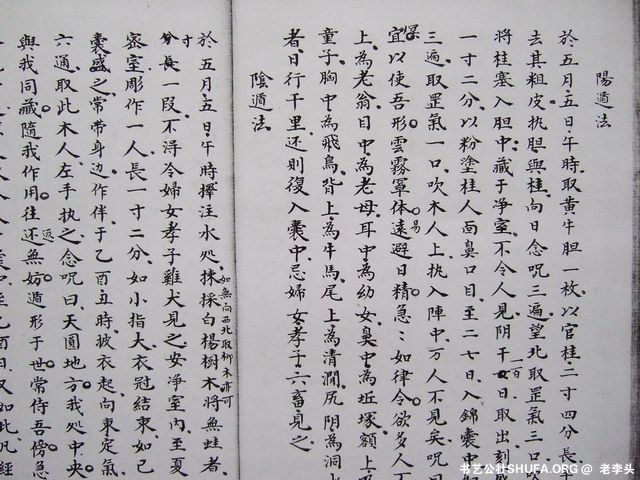 陽遁法
於五月五日午時取黄牛胆一枚以官桂二寸四分長
去其粗皮执胆與桂向日念呪三遍望北取罡氣三口吹
將桂塞入胆中藏于净室不令人見阴干百日取出刻
一百
一寸二分以粉塗桂人面鼻口目至二七日入錦囊中
三遍取罡氣一口吹木人上执入陣中万人不見矣呪曰
宜以使吾形雲霧罩体遠避日精急〻如律令欲多人
易
上為老翁目中為老母耳中為幼女鼻中為坵塚額上
童子胸中為飛鳥背上為牛馬尾上為清澗尻阴為洞
者日行千里还則復入囊中忌婦女孝子六畜見之
陰遁法
於五月五日午時擇注水处採白楊樹木將無蛀者
如無向西北取柳木亦可
寸
分長一段不淂令婦女孝子雞犬見之安净室内至夏
密室彫作一人長一寸二分如小指大衣冠結束如已
囊盛之常带身边作伴于乙酉五時披衣起向東定氣
六通取此木人左手执之念呪曰天圓地方我处中央
與我同藏隨我作用往还無妨遁形于世常侍吾傍急
返